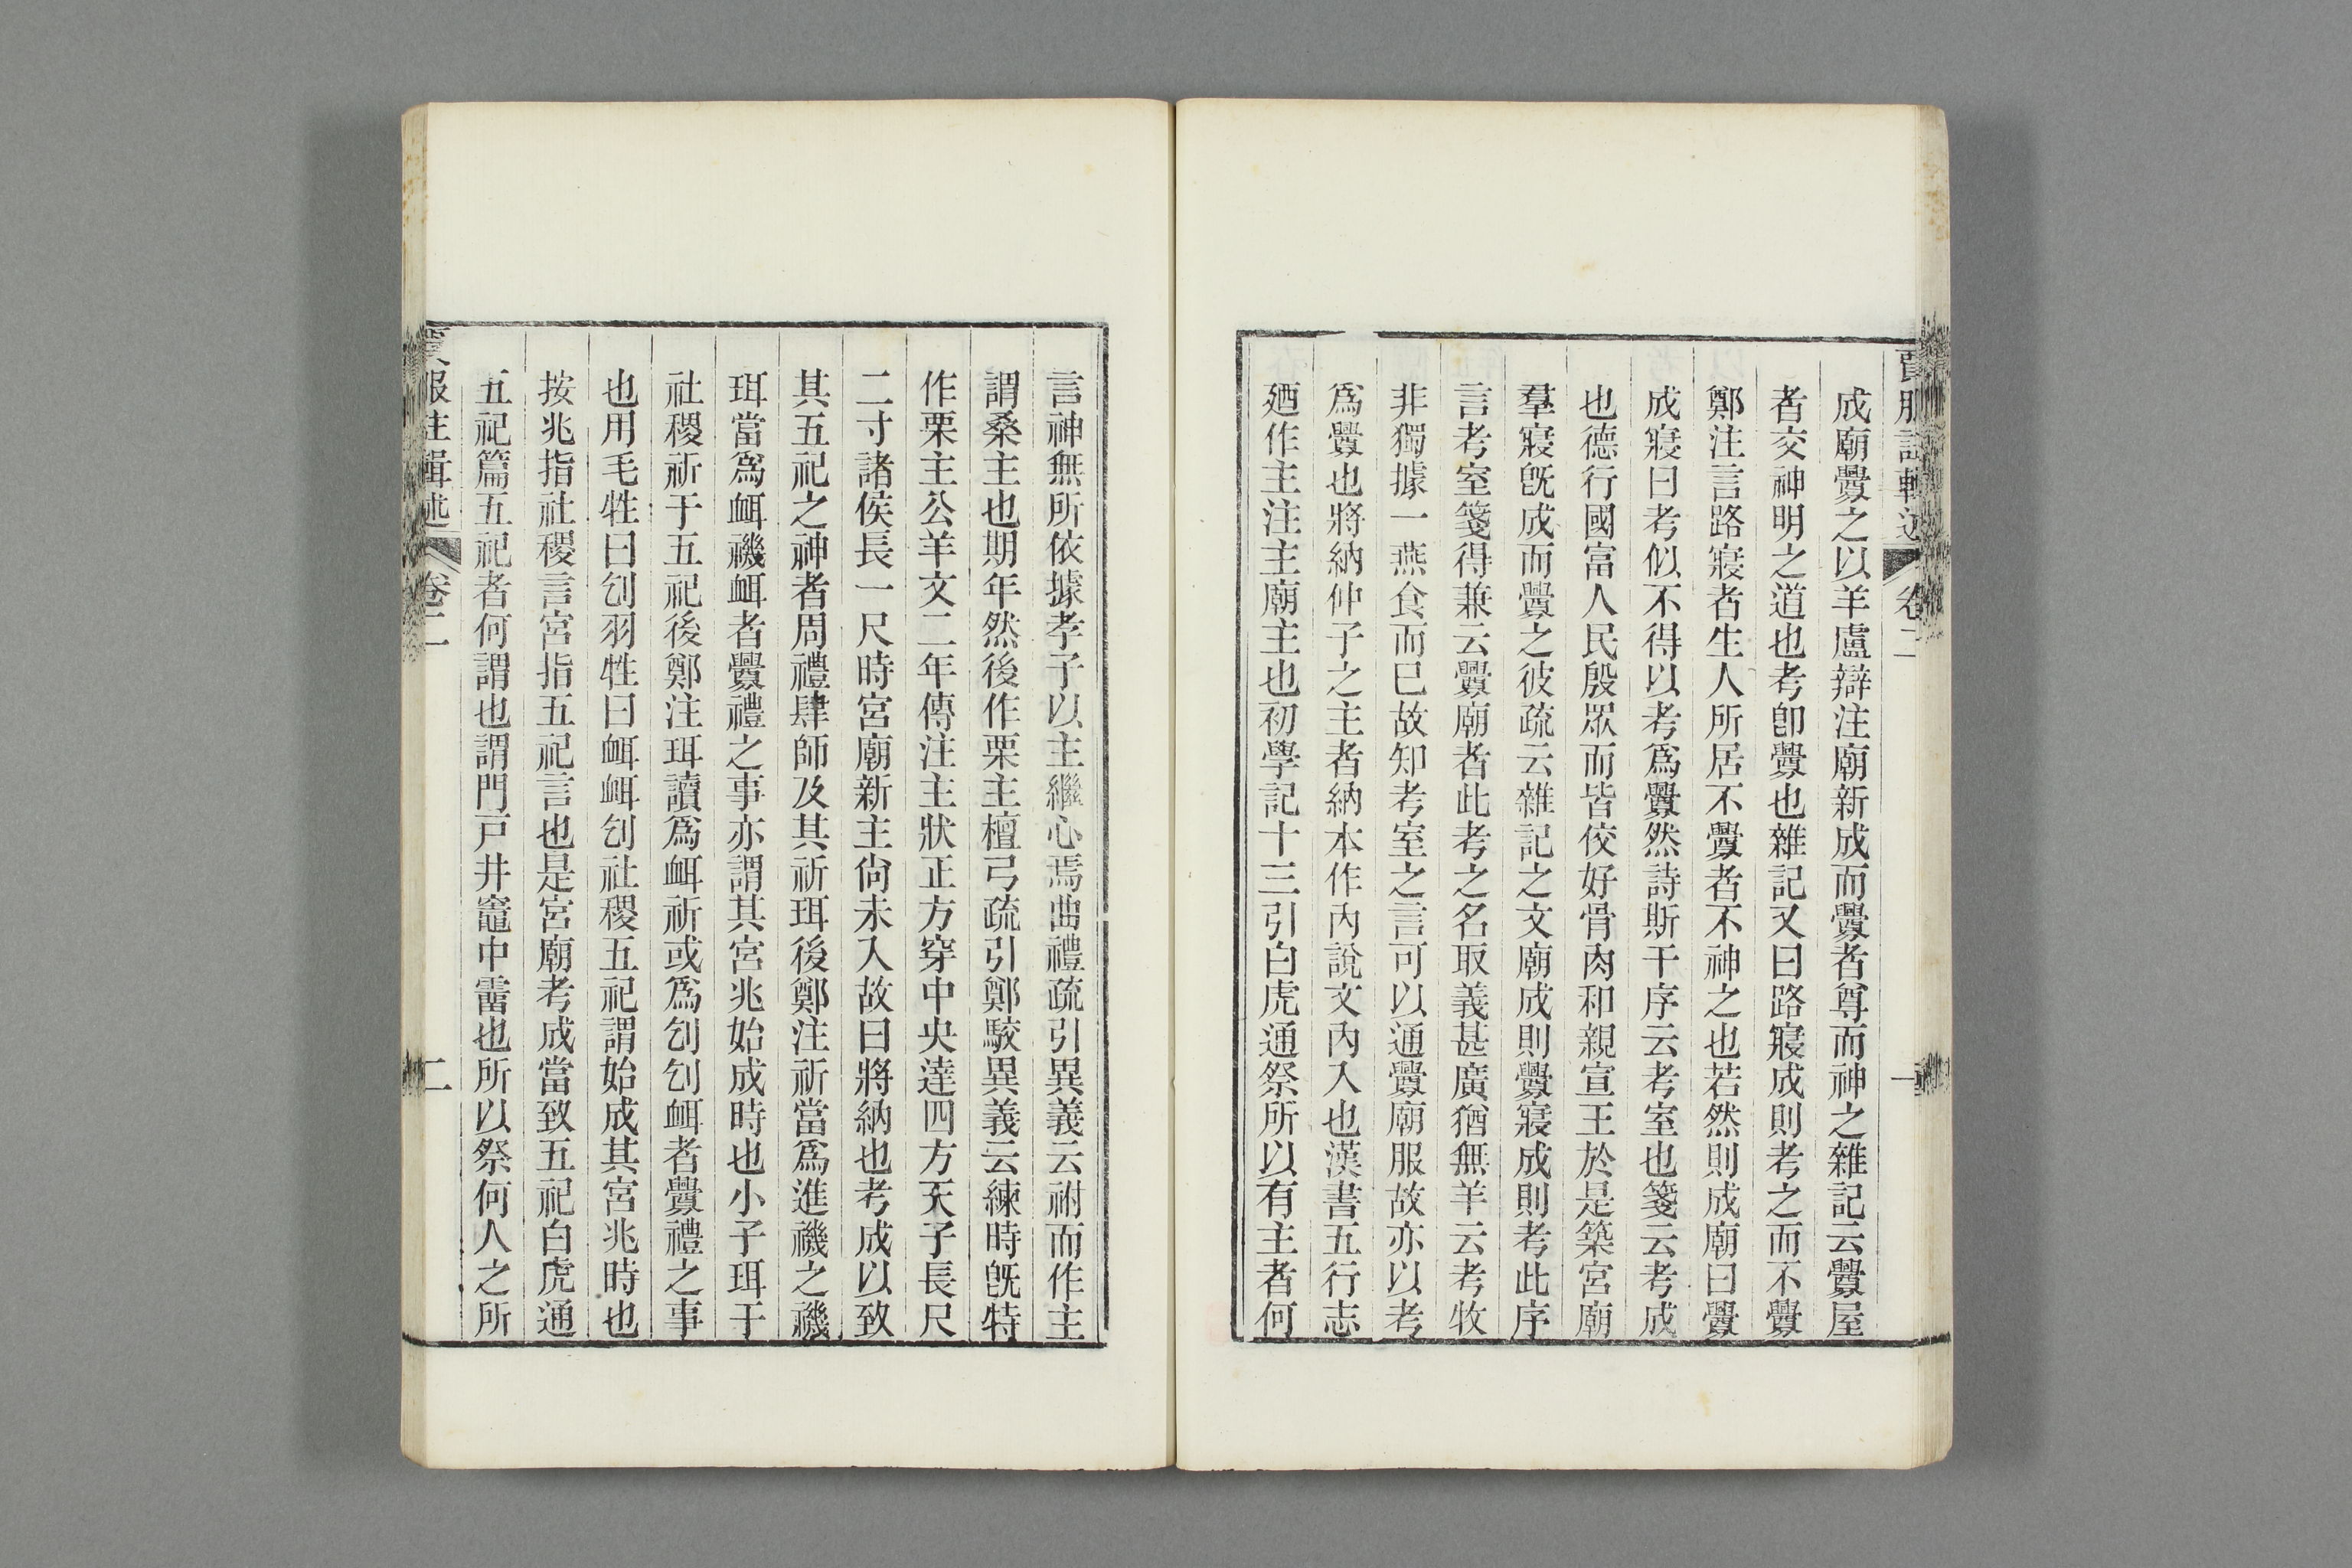 賈服註輯述 卷二 一
成廟釁之以羊盧辯注廟新成而釁者尊而神之雜記云釁屋
者交神明之道也考卽釁也雜記又曰路寢成則考之而不釁
鄭注言路寢者生人所居不釁者不神之也若然則成廟曰釁
成寢曰考似不得以考爲釁然詩斯干序云考室也箋云考成
也德行國富人民殷眾而皆佼好骨肉和親宣王於是築宮廟
羣寢旣成而釁之彼疏云雜記之文廟成則釁寢成則考此序
言考室箋得兼云釁廟者此考之名取義甚廣猶無羊云考牧
非獨據一燕食而巳故知考室之言可以通釁廟服故亦以考
爲釁也將納仲子之主者納本作內說文內入也漢書五行志
廼作主注主廟主也初學記十三引白虎通祭所以有主者何
言神無所依據孝子以主繼心焉曲禮疏引異義云祔而作主
謂桑主也期年然後作栗主檀弓疏引鄭駮異義云練時旣特
作栗主公羊文二年傳注主狀正方穿中央達四方天子長尺
二寸諸侯長一尺時宮廟新主尙未入故曰將納也考成以致
其五祀之神者周禮肆師及其祈珥後鄭注祈當爲進禨之禨
珥當爲衈禨衈者釁禮之事亦謂其宮兆始成時也小子珥于
社稷祈于五祀後鄭注珥讀爲衈祈或爲刉刉衈者釁禮之事
也用毛牲曰刉羽牲曰衈衈刉社稷五祀謂始成其宮兆時也
按兆指社稷言宮指五祀言也是宮廟考成當致五祀白虎通
五祀篇五祀者何謂也謂門戸井竈中霤也所以祭何人之所
賈服註輯述 卷二 二